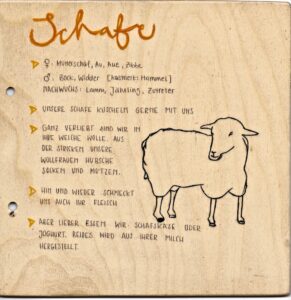 Schafe
♀: Mutterschaf, Au, Aue, Zibbe
♂: Bock, Widder [kastriert: Hammel]
NACHWUCHS: Lamm, Jährling, Zutreter
UNSERE SCHAFE KUSCHELN GERNE MIT UNS
GANZ VERLIEBT SIND WIR IN
IHRE WEICHE WOLLE. AUS
DER STRICKEN UNSERE
WOLLFRAUEN HÜBSCHE
SOCKEN UND MÜTZEN.
HIN UND WIEDER SCHMECKT
UNS AUCH IHR FLEISCH
ABER LIEBER ESSEN WIR SCHAFSKÄSE ODER
JOGHURT. BEIDES WIRD AUS IHRER MILCH
HERGESTELLT.